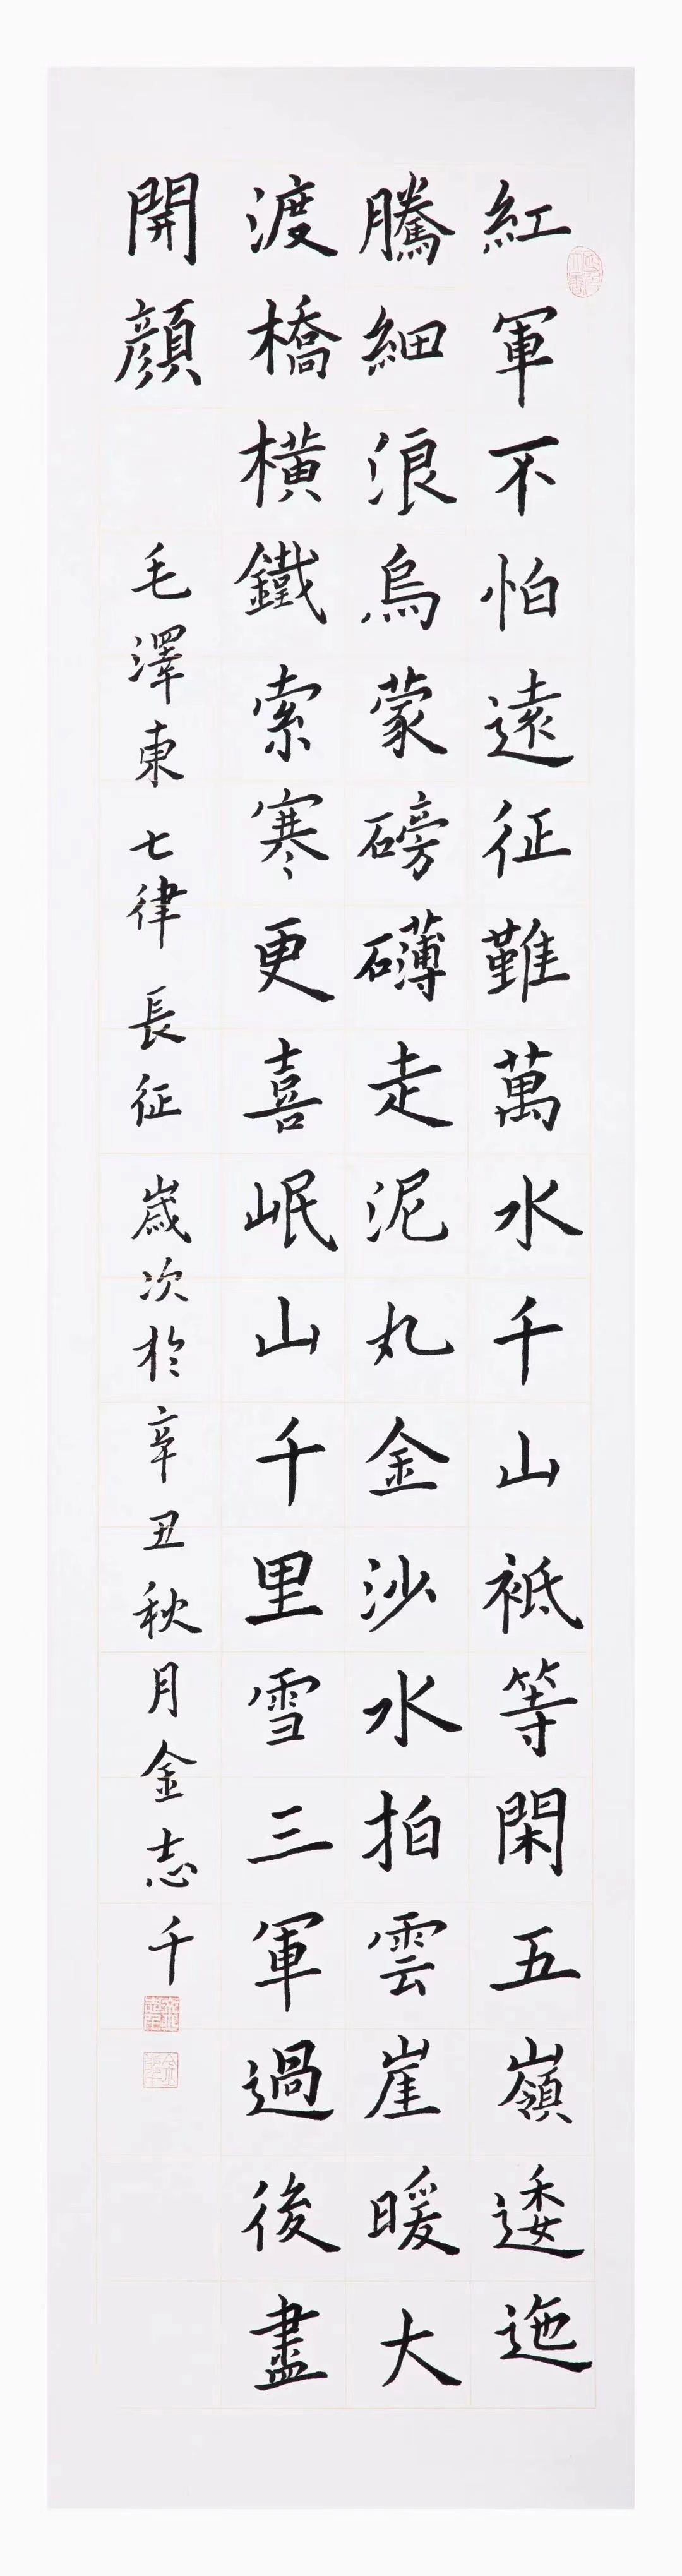 紅軍不怕遠征難萬水千山衹等閑五嶺逶迤
騰細浪烏蒙磅礴走泥丸金沙水拍雲崖暖大
渡橋橫鐵索寒更喜岷山千里雪三軍過後盡
開顏
毛澤東七律長征歲次於辛丑秋月金志千